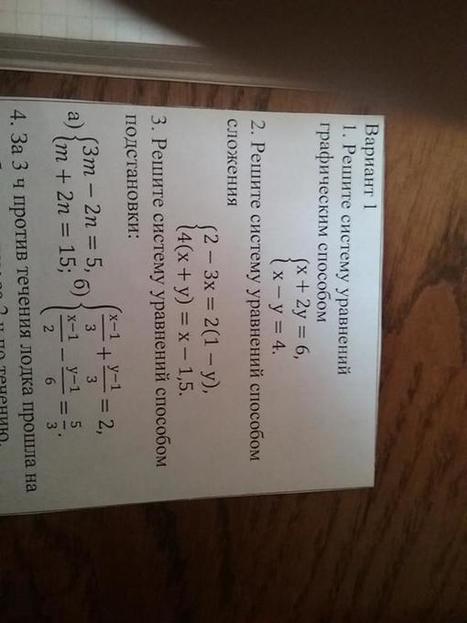 Вариант 1
1. Решите систему уравнений
графическим способом
{x + 2y = 6,
{x − y = 4.
2. Решите систему уравнений способом
сложения
{2 − 3x = 2(1 − y),
{4(x + y) = x − 1,5.
3. Решите систему уравнений способом
подстановки:
а) {3m − 2n = 5, б) {(x−1)/3 + (y−1)/3 = 2,
{m + 2n = 15; {(x−1)/2 − (y−1)/6 = 5/3.
4. За 3 ч против течения лодка прошла на
2 ч по течению.